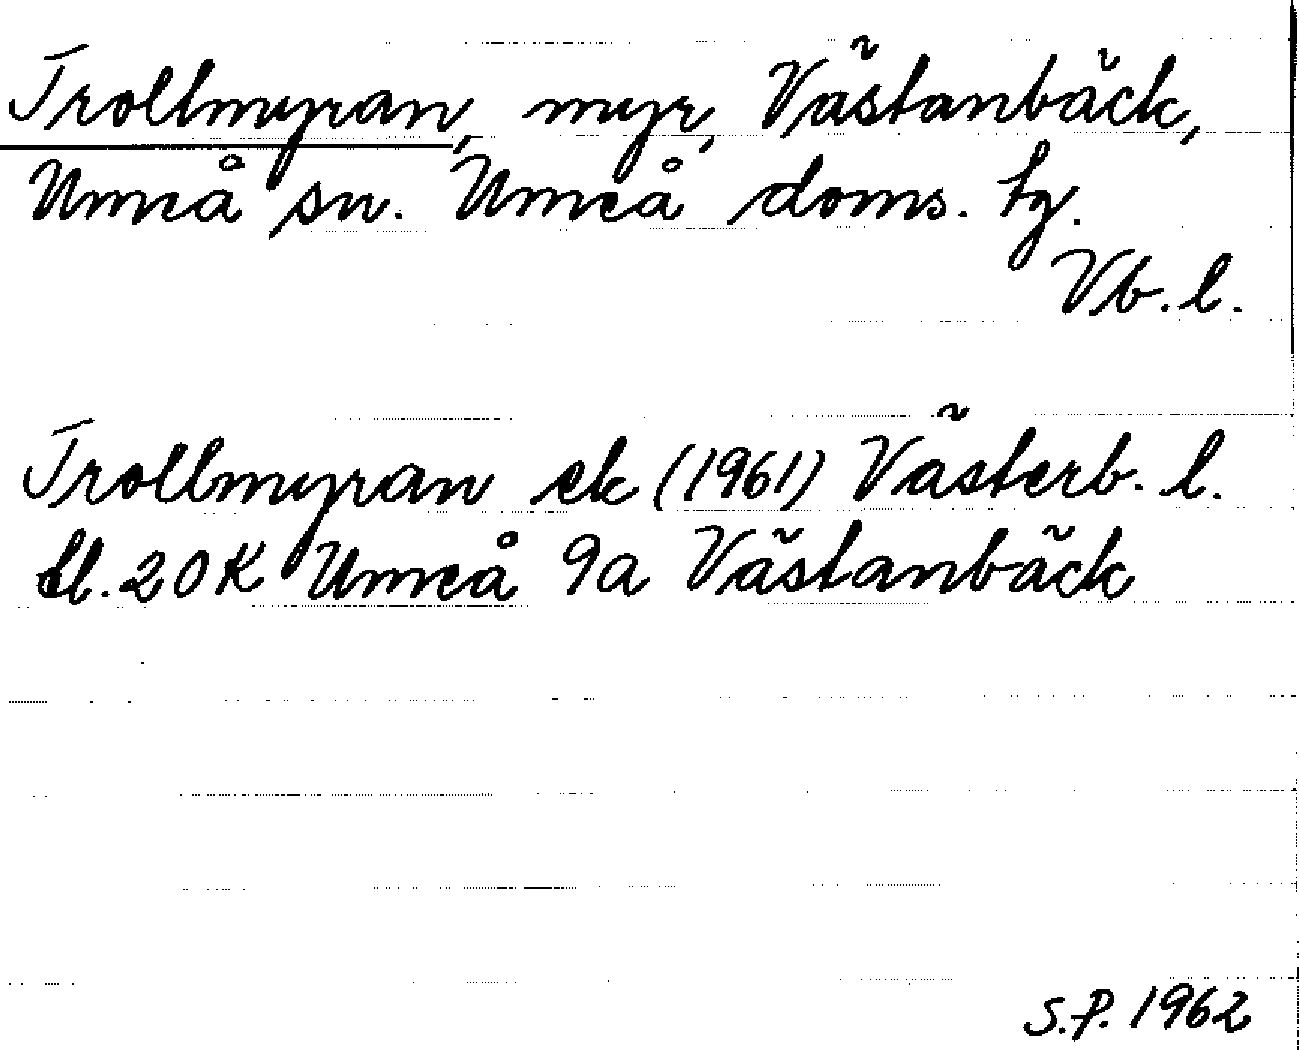 Trollmyran, myr, Västanbäck,
Umeå sn. Umeå doms. tg.
Vb. l.
Trollmyran ek (1961) Västerb. l.
bl. 20K Umeå 9a Västanbäck
S.P. 1962